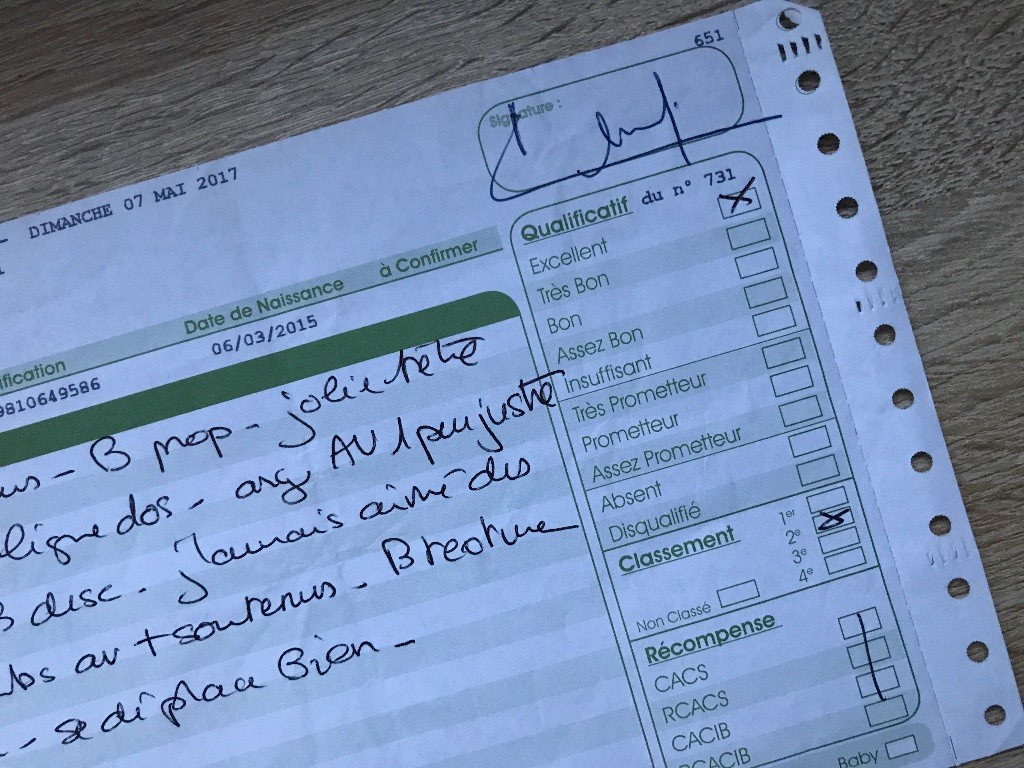 651
Signature :
DIMANCHE 07 MAI 2017
Qualificatif du n° 731
Excellent
Très Bon
Bon
Assez Bon
Insuffisant
Très Prometteur
Prometteur
Assez Prometteur
Absent
Disqualifié
Classement
1er
2e
3e
4e
Non Classé
Récompense
CACS
RCACS
CACIB
RCACIB
Baby
ification
Date de Naissance
à Confirmer
9810649586
06/03/2015
us - B prop - jolie tête
ligne dos - ang AV 1 peu juste
B disc . J'aurais aimé des
bs av + soutenus - B texture
- se déplace Bien -